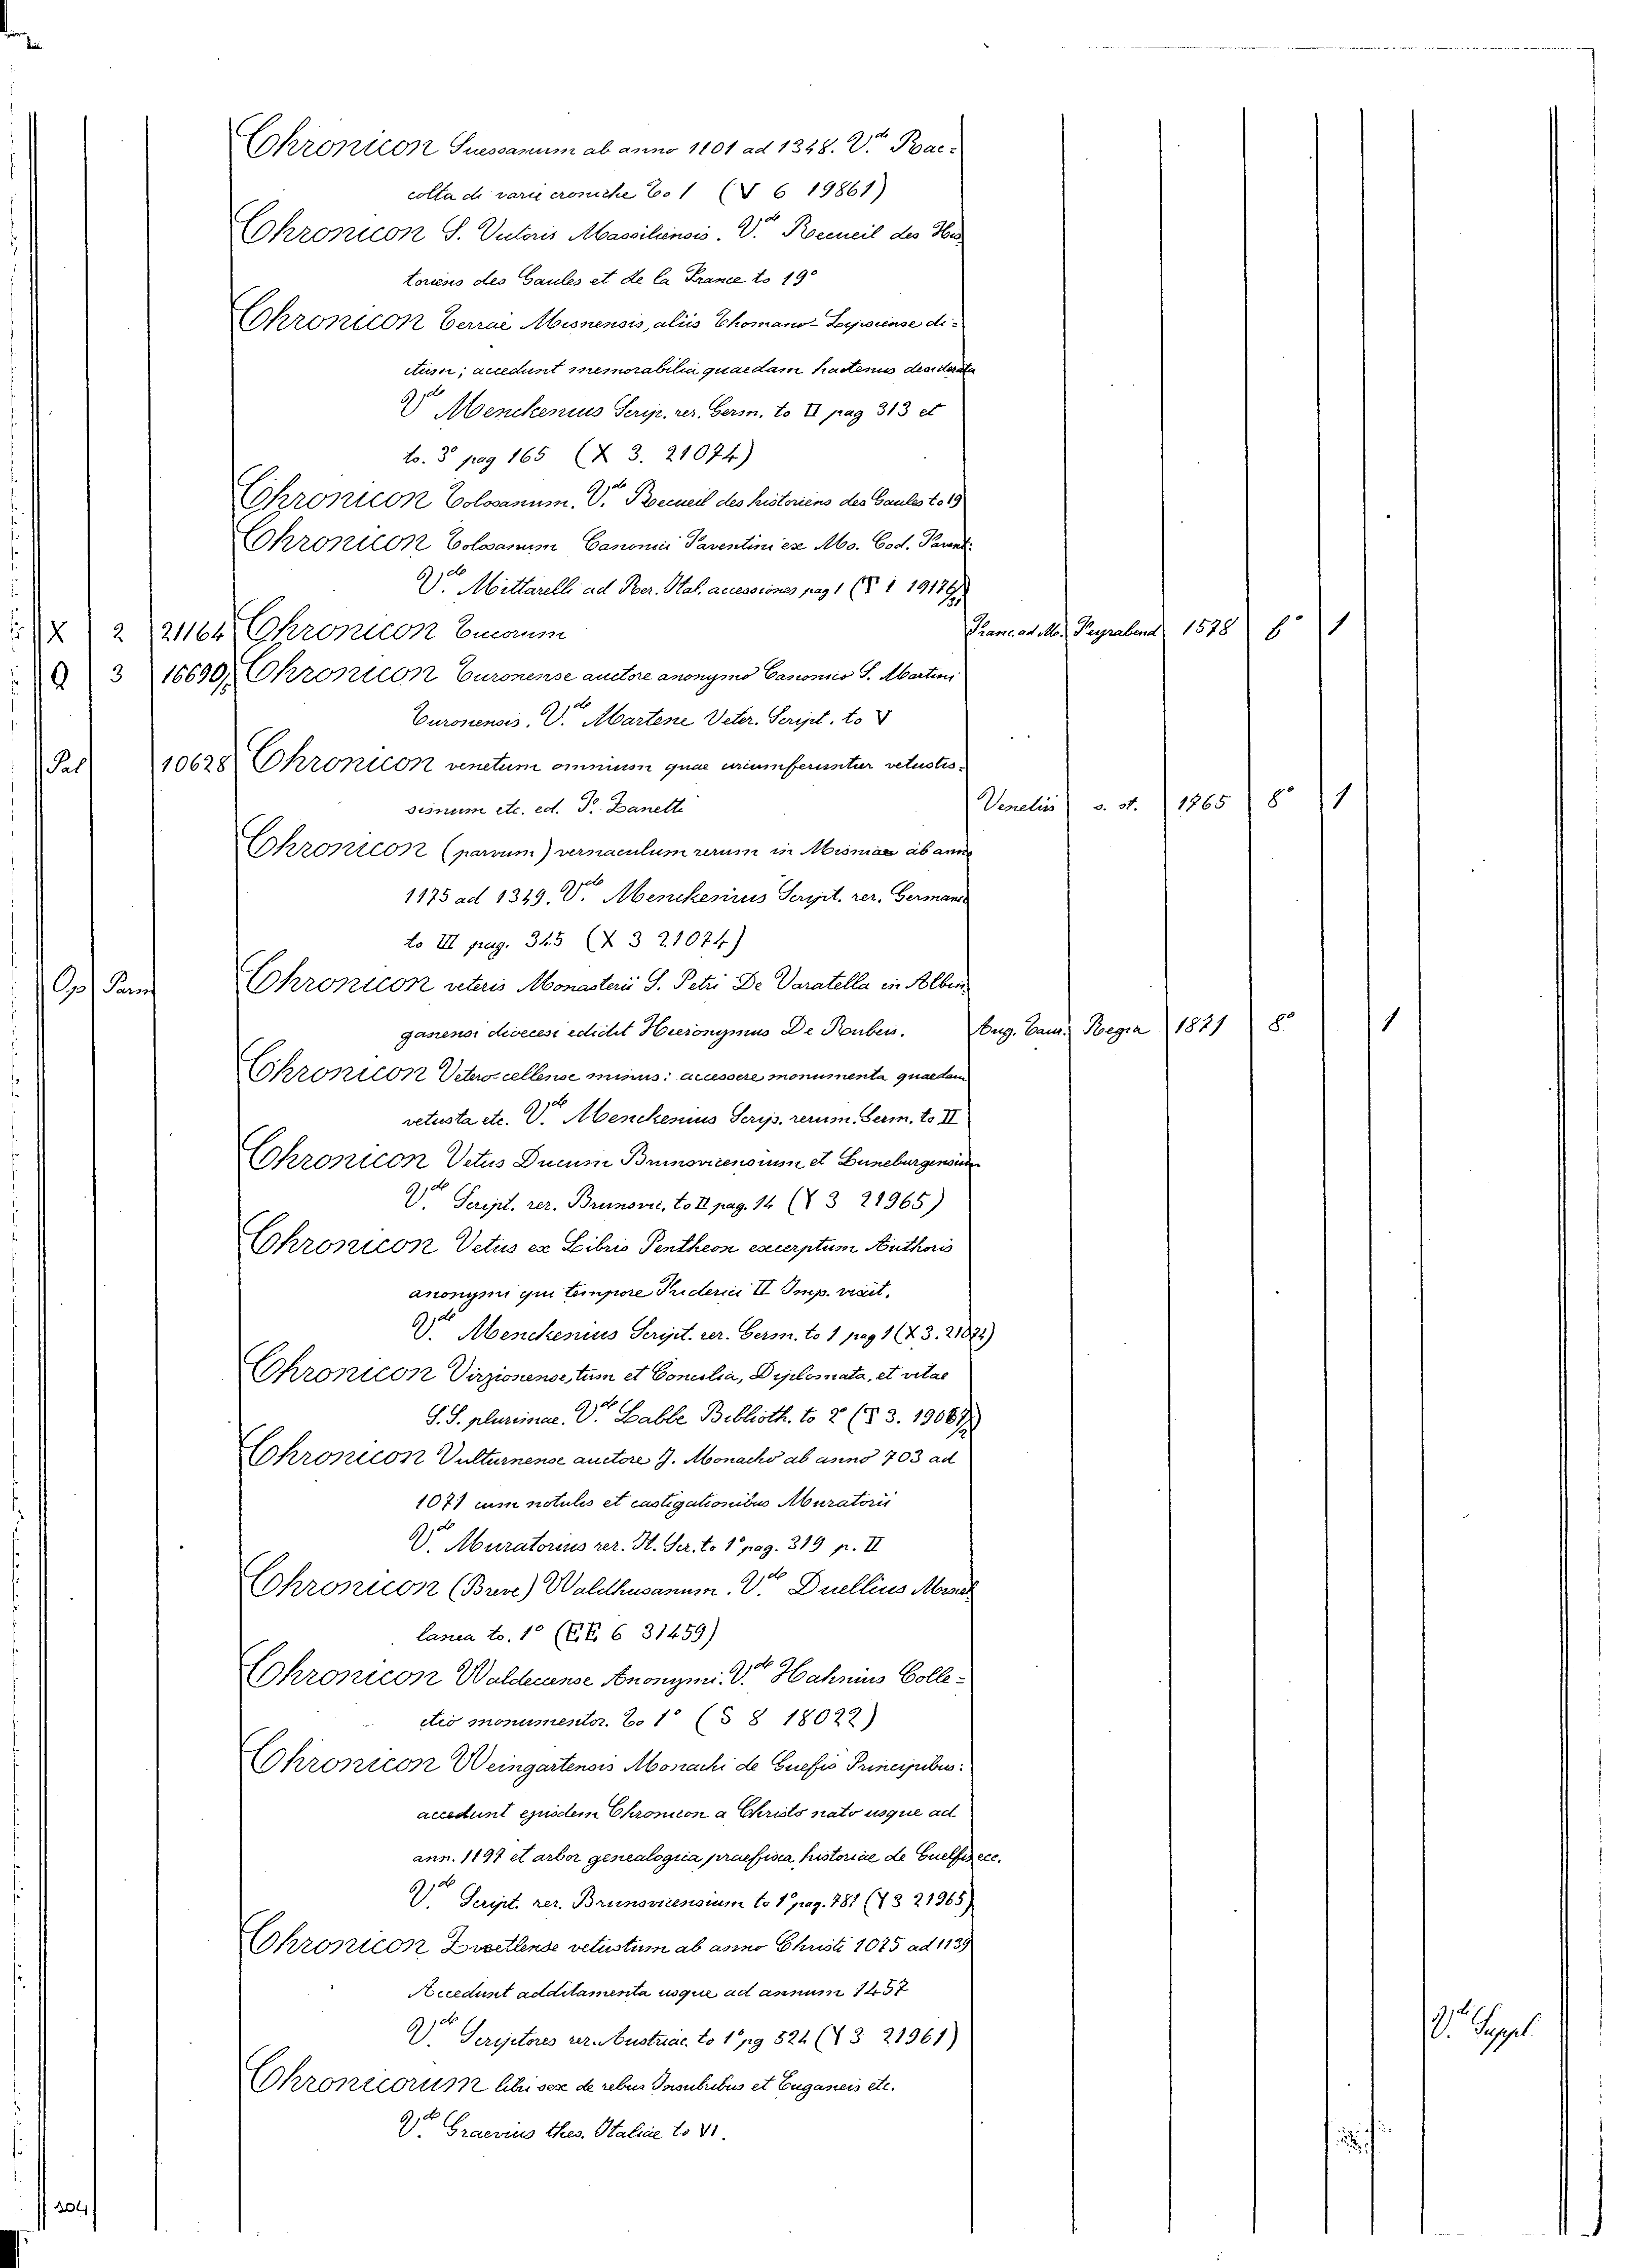 Chronicon Suessanum ab anno 1101 ad 1348. V.de Rac-
colta di varie croniche To 1 (V 6 19861)
Chronicon S. Victoris Massiliensis. V.de Recueil des His
toriens des Gaules et de la France to 19°
Chronicon Terrae Misnensis, aliis Thomano-Lypsiense di-
ctum; accedunt memorabilia quaedam hactenus desiderata
V.de Menckenius Scrip. rer. Germ. to II pag 313 et
to. 3° pag 165 (X 3. 21074)
Chronicon Tolosanum. V.de Recueil des historiens des Gaules to 19
Chronicon Tolosanum Canonici Faventini ex Ms. Cod. Favent.
V.de Mittarelli ad Rer. Ital. accessiones pag 1
X 2 21164 Chronicon Turcorum Franc. ad M. Feyrabend 1578 f° 1
Q 3 16690 Chronicon Turonense auctore anonymo Canonico S. Martini
Turonensis. V.de Martene Veter. Script. to V
Pal 10628 Chronicon venetum omnium quae circumferuntur vetustis-
simum etc. ed. F. Zanetti Venetiis s. st. 1765 8° 1
Chronicon (parvum) vernaculum rerum in Misniae ab anno
1175 ad 1349. V.de Menckenius Script. rer. German
to III pag. 345 (X 3 21074)
Op Parm Chronicon veteris Monasterii S. Petri De Varatella in Albin
ganensi dioecesi edidit Hieronymus De Rubeis. Aug. Taur. Regia 1871 8° 1
Chronicon Veterocellense minus: accessere monumenta quaedam
vetusta etc. V.de Menckenius Scrip. rerum. Germ. to II
Chronicon Vetus Ducum Brunsvicensium et Luneburgensium
V.de Script. rer. Brunsvic. to II pag. 14 (Y 3 21965)
Chronicon Vetus ex Libris Pentheon excerptum Authoris
anonymi qui tempore Friderici II Imp. vixit.
V.de Menckenius Script. rer. Germ. to 1 pag 1 (X 3. 21074)
Chronicon Virzionense, tum et Concilia, Diplomata, et vitae
S. S. plurimae. V.de Labbe Biblioth. to 2°
Chronicon Vulturnense auctore J. Monacho ab anno 703 ad
1071 cum notulis et castigationibus Muratorii
V.de Muratorius rer. It. Scr. to 1° pag. 319 p. II
Chronicon (Breve) Waldhusanum. V.de Duellius Miscel
lanea to. 1° (EE 6 31459)
Chronicon Waldecense Anonymi. V.de Hahnius Colle-
ctio monumentor. To 1° (S 8 18022)
Chronicon Weingartensis Monachi de Guelfis Principibus:
accedunt ejusdem Chronicon a Christo nato usque ad
ann. 1197 et arbor genealogica praefixa, historiae de Guelfis ecc.
V.de Script. rer. Brunsvicensium to 1° pag. 781 (Y 3 21965)
Chronicon Zwetlense vetustum ab anno Christi 1075 ad 1139
Accedunt additamenta usque ad annum 1457
V.de Scriptores rer. Austriac. to 1° pg 524 (Y 3 21961) V.de Suppl.
Chronicorum libri sex de rebus Insubribus et Euganeis etc.
V.de Graevius thes. Italiae to VI.
204